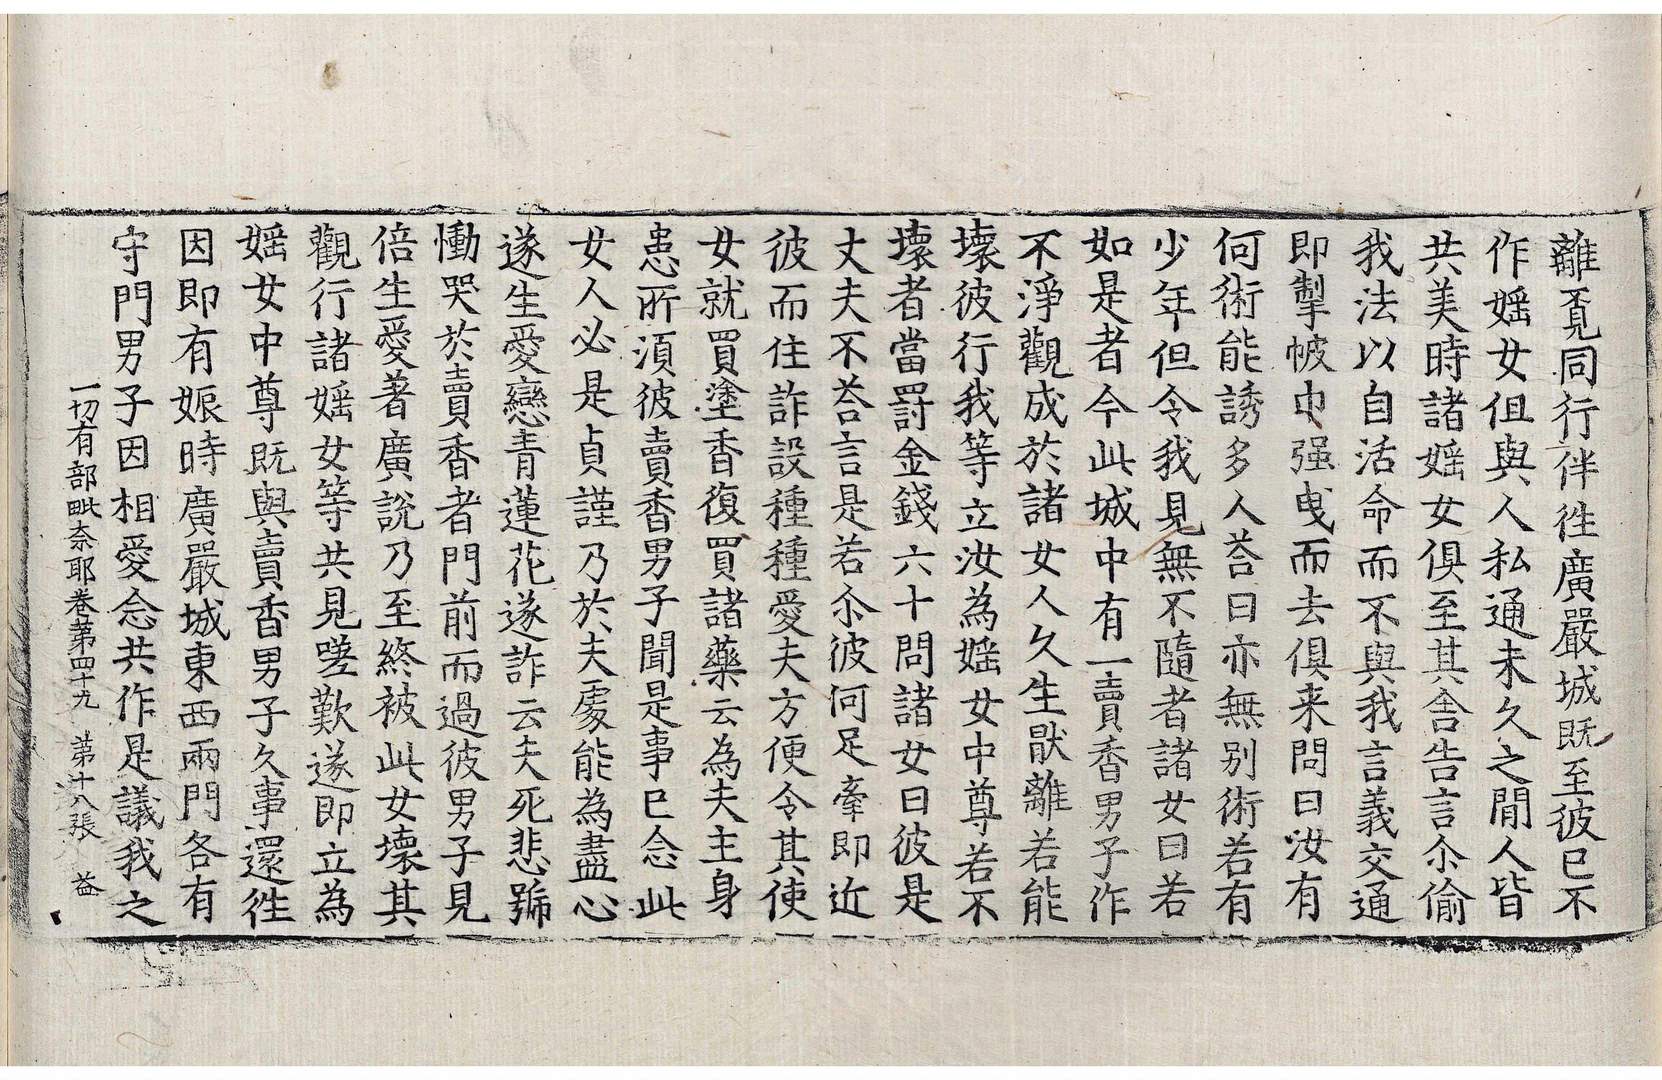 離覔同行伴徃廣嚴城既至彼已不
作婬女但與人私通未久之閒人皆
共美時諸婬女俱至其舎告言尒偷
我法以自活命而不與我言義交通
即掣帔巾强曵而去俱来問曰汝有
何術能誘多人荅曰亦無别術若有
少年但令我見無不隨者諸女曰若
如是者今此城中有一賣香男子作
不淨觀成於諸女人久生猒離若能
壞彼行我等立汝為婬女中尊若不
壞者當罸金錢六十問諸女曰彼是
丈夫不荅言是若尒彼何足牽即近
彼而住詐設種種愛夫方便令其使
女就買塗香復買諸藥云為夫主身
患所湏彼賣香男子聞是事已念此
女人必是貞謹乃於夫處能為盡心
遂生愛戀青蓮花遂詐云夫死悲號
慟哭於賣香者門前而過彼男子見
倍生愛著廣說乃至終被此女壞其
觀行諸婬女等共見嗟歎遂即立為
婬女中尊既與賣香男子久事還徃
因即有娠時廣嚴城東西兩門各有
守門男子因相愛念共作是議我之
一切有部毗奈耶卷第四十九 第十八張 益